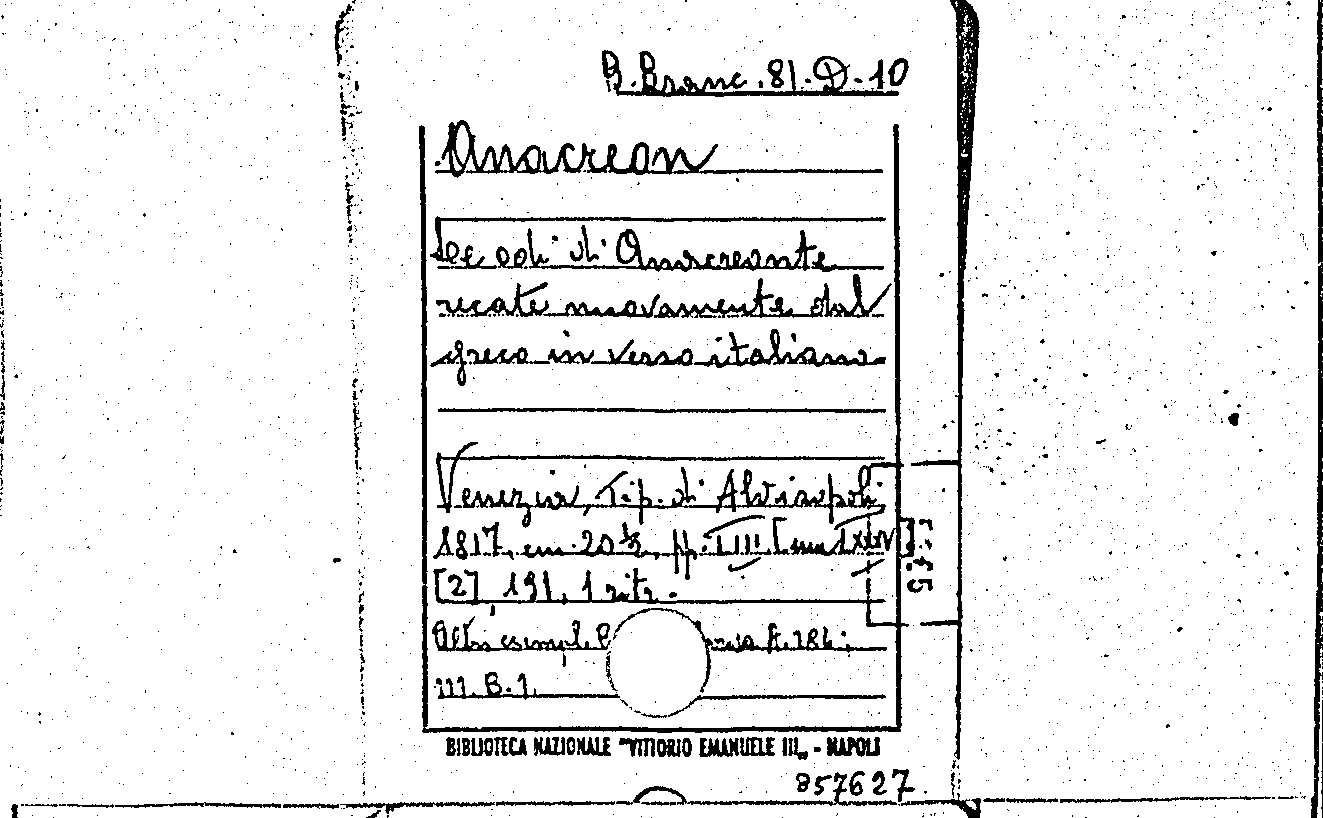 B. Branc. 81. D. 10
Anacreon
Le odi di Anacreonte
recate nuovamente dal
greco in verso italiano
Venezia, Tip. di Alvisopoli
1817, cm. 20 ½, pp.
[2], 191, 1 ritr.
Altri esempl.
III. B. 1.
BIBLIOTECA NAZIONALE "VITTORIO EMANUELE III„ - NAPOLI
857627